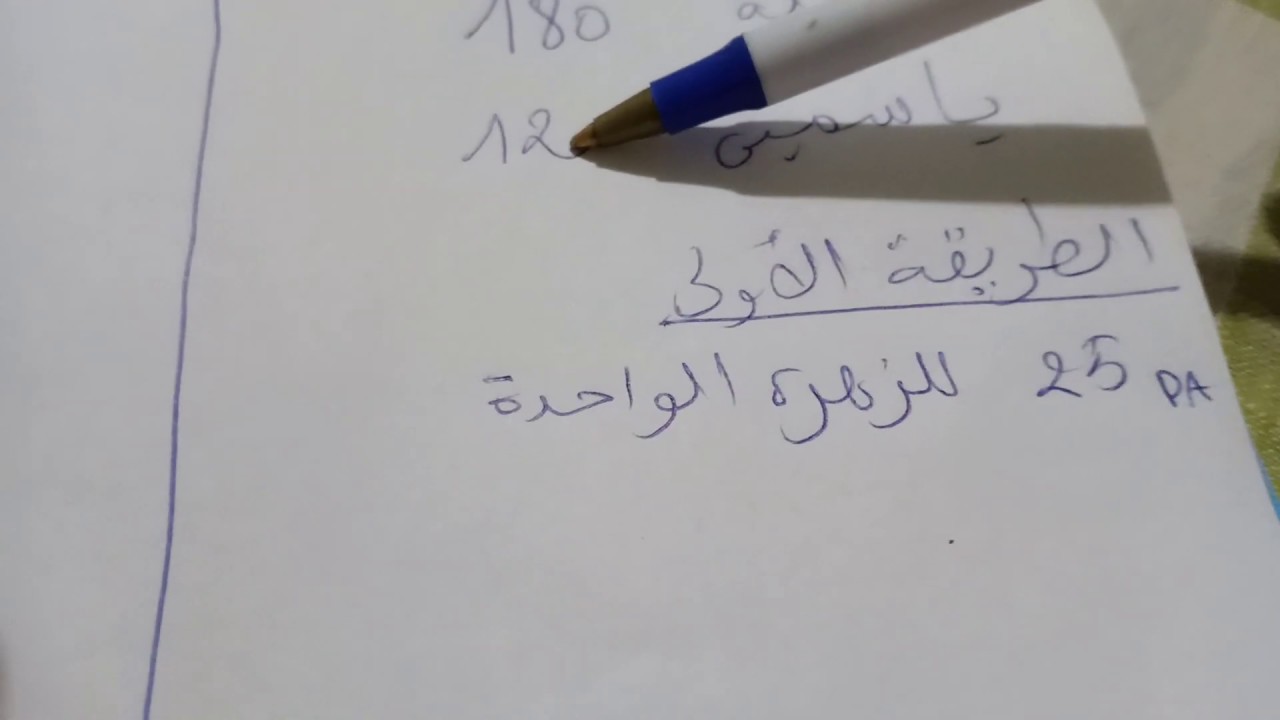 180
ياسمين 12
الطريقة الأولى
25 DA للزهرة الواحدة